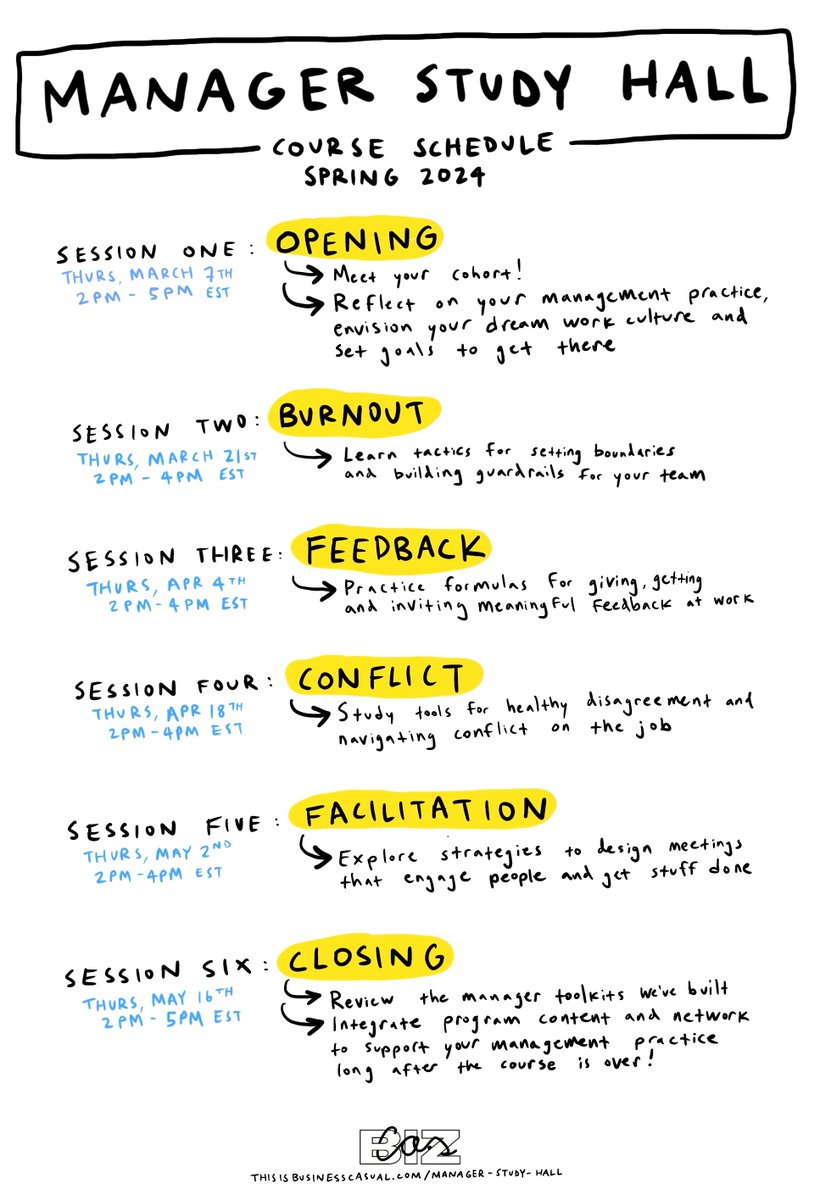 MANAGER STUDY HALL
COURSE SCHEDULE
SPRING 2024
SESSION ONE: OPENING
THURS, MARCH 7TH
2PM - 5PM EST
Meet your cohort!
Reflect on your management practice,
envision your dream work culture and
set goals to get there
SESSION TWO: BURNOUT
THURS, MARCH 21ST
2PM - 4PM EST
Learn tactics for setting boundaries
and building guardrails for your team
SESSION THREE: FEEDBACK
THURS, APR 4TH
2PM-4PM EST
Practice formulas for giving, getting
and inviting meaningful feedback at work
SESSION FOUR: CONFLICT
THURS, APR 18TH
2PM-4PM EST
Study tools for healthy disagreement and
navigating conflict on the job
SESSION FIVE: FACILITATION
THURS, MAY 2ND
2PM-4PM EST
Explore strategies to design meetings
that engage people and get stuff done
SESSION SIX: CLOSING
THURS, MAY 16TH
2PM- 5PM EST
Review the manager toolkits we've built
Integrate program content and network
to support your management practice
long after the course is over!
BIZ Cas
THISISBUSINESSCASUAL.COM/MANAGER-STUDY-HALL